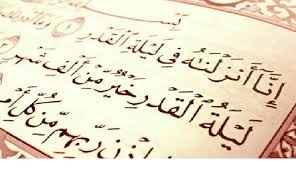 إِنَّا أَنزَلْنَٰهُ فِى لَيْلَةِ ٱلْقَدْرِ ١ وَمَآ
لَيْلَةُ ٱلْقَدْرِ خَيْرٌ مِّنْ أَلْفِ شَهْرٍ
رَبِّهِم مِّن كُلِّ